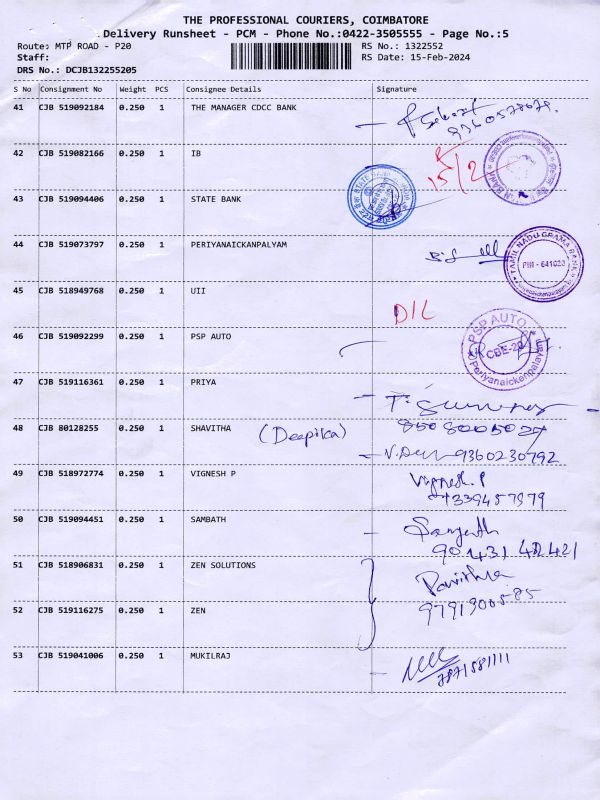 THE PROFESSIONAL COURIERS, COIMBATORE
Delivery Runsheet - PCM - Phone No.:0422-3505555 - Page No.:5
Route: MTP ROAD - P20 RS No.: 1322552
Staff: RS Date: 15-Feb-2024
DRS No.: DCJB132255205
S No Consignment No Weight PCS Consignee Details Signature
41 CJB 519092184 0.250 1 THE MANAGER CDCC BANK
42 CJB 519082166 0.250 1 IB 15/2
43 CJB 519094406 0.250 1 STATE BANK
44 CJB 519073797 0.250 1 PERIYANAICKANPALYAM
TAMIL NADU GRAMA BANK
45 CJB 518949768 0.250 1 UII D/L
46 CJB 519092299 0.250 1 PSP AUTO
PSP AUTO
CBE-20
Periyanaickenpalayam
47 CJB 519116361 0.250 1 PRIYA
48 CJB 80128255 0.250 1 SHAVITHA (Deepika) 8508005027
9360230792
49 CJB 518972774 0.250 1 VIGNESH P Vignesh. P
50 CJB 519094451 0.250 1 SAMBATH
90431 42421
51 CJB 518906831 0.250 1 ZEN SOLUTIONS Pavithra
52 CJB 519116275 0.250 1 ZEN
53 CJB 519041006 0.250 1 MUKILRAJ
7871581111